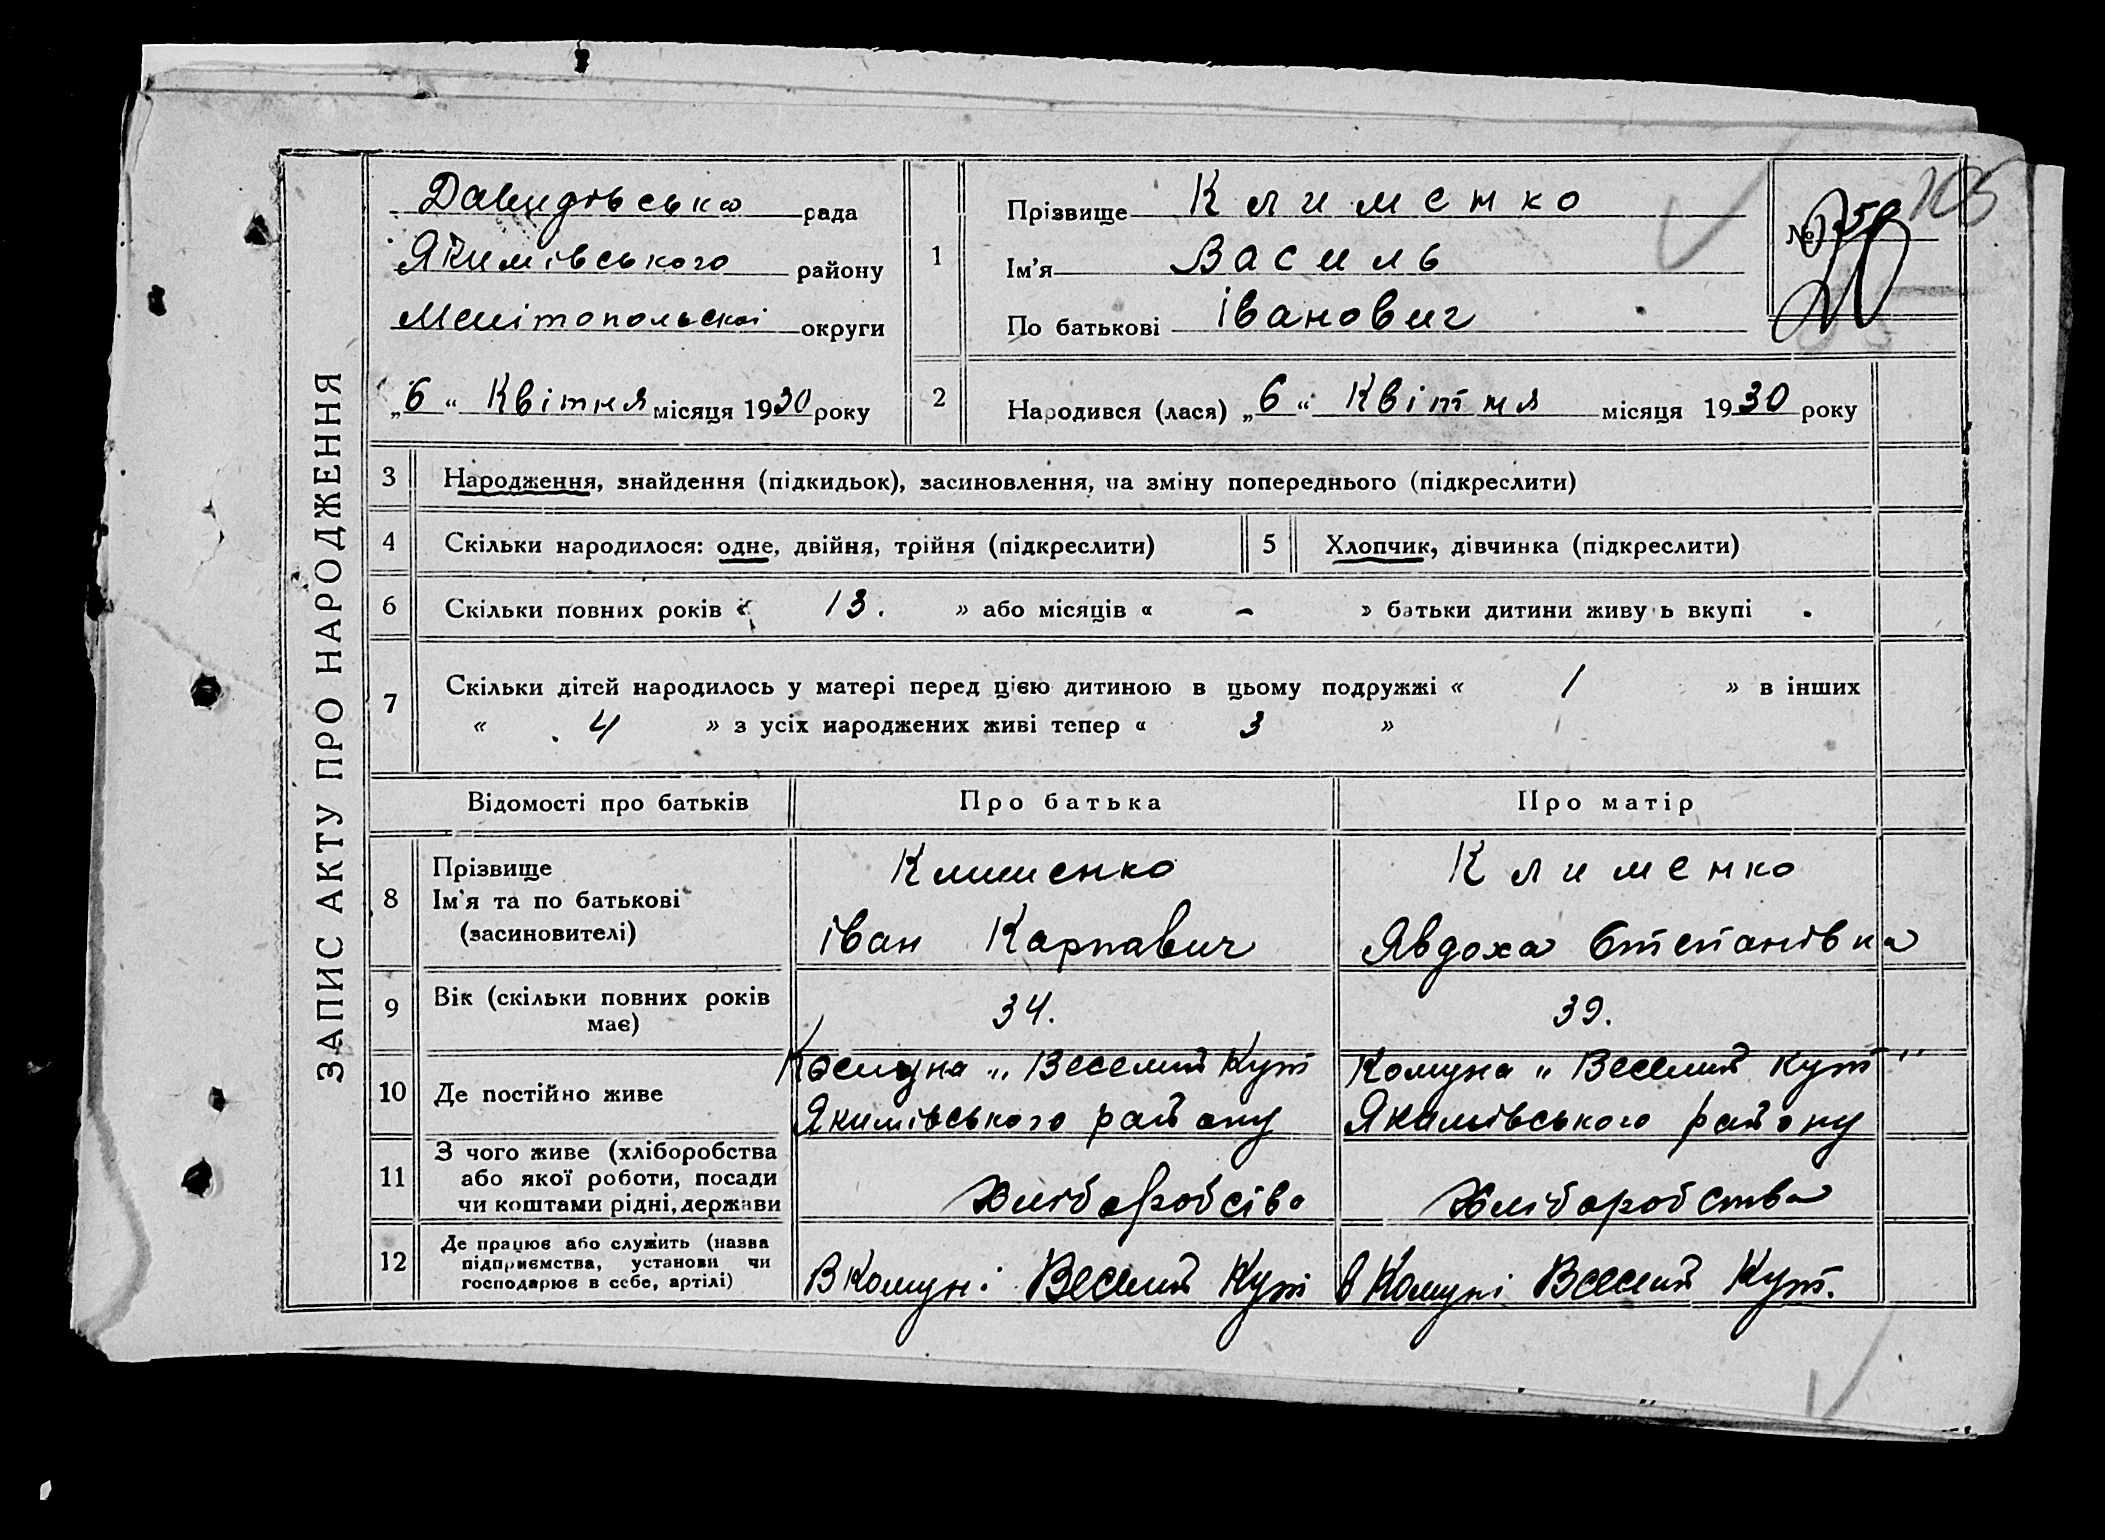 ЗАПИС АКТУ ПРО НАРОДЖЕННЯ
Давидівська рада
Якимівського району
Мелітопольської округи
„6“ Квітня місяця 1930 року
1
Прізвище Клименко
Ім’я Василь
По батькові Іванович
№
105
2
Народився (лася) „6“ Квітня місяця 1930 року
3 Народження, знайдення (підкидьок), засиновлення, на зміну попереднього (підкреслити)
4 Скільки народилося: одне, двійня, трійня (підкреслити)
5 Хлопчик, дівчинка (підкреслити)
6 Скільки повних років « 13. » або місяців « – » батьки дитини живуть вкупі
7 Скільки дітей народилось у матері перед цією дитиною в цьому подружжі « 1 » в інших
« 4 » з усіх народжених живі тепер « 3 »
Відомості про батьків
Про батька
Про матір
8
Прізвище
Ім’я та по батькові
(засиновителі)
Клименко
Іван Карпавич
Клименко
Явдоха Степанівна
9
Вік (скільки повних років
має)
34.
39.
10 Де постійно живе
Комуна „ Веселий Кут
Якимівського району
Комуна „ Веселий кут"
Якимівського району
11
З чого живе (хліборобства
або якої роботи, посади
чи коштами рідні, держави
Хліборобсіва
Хліборобства
12
Де працює або служить (назва
підприємства, установи чи
господарює в себе, артілі)
В Комуні Веселий Кут
в Комуні Веселий Кут.